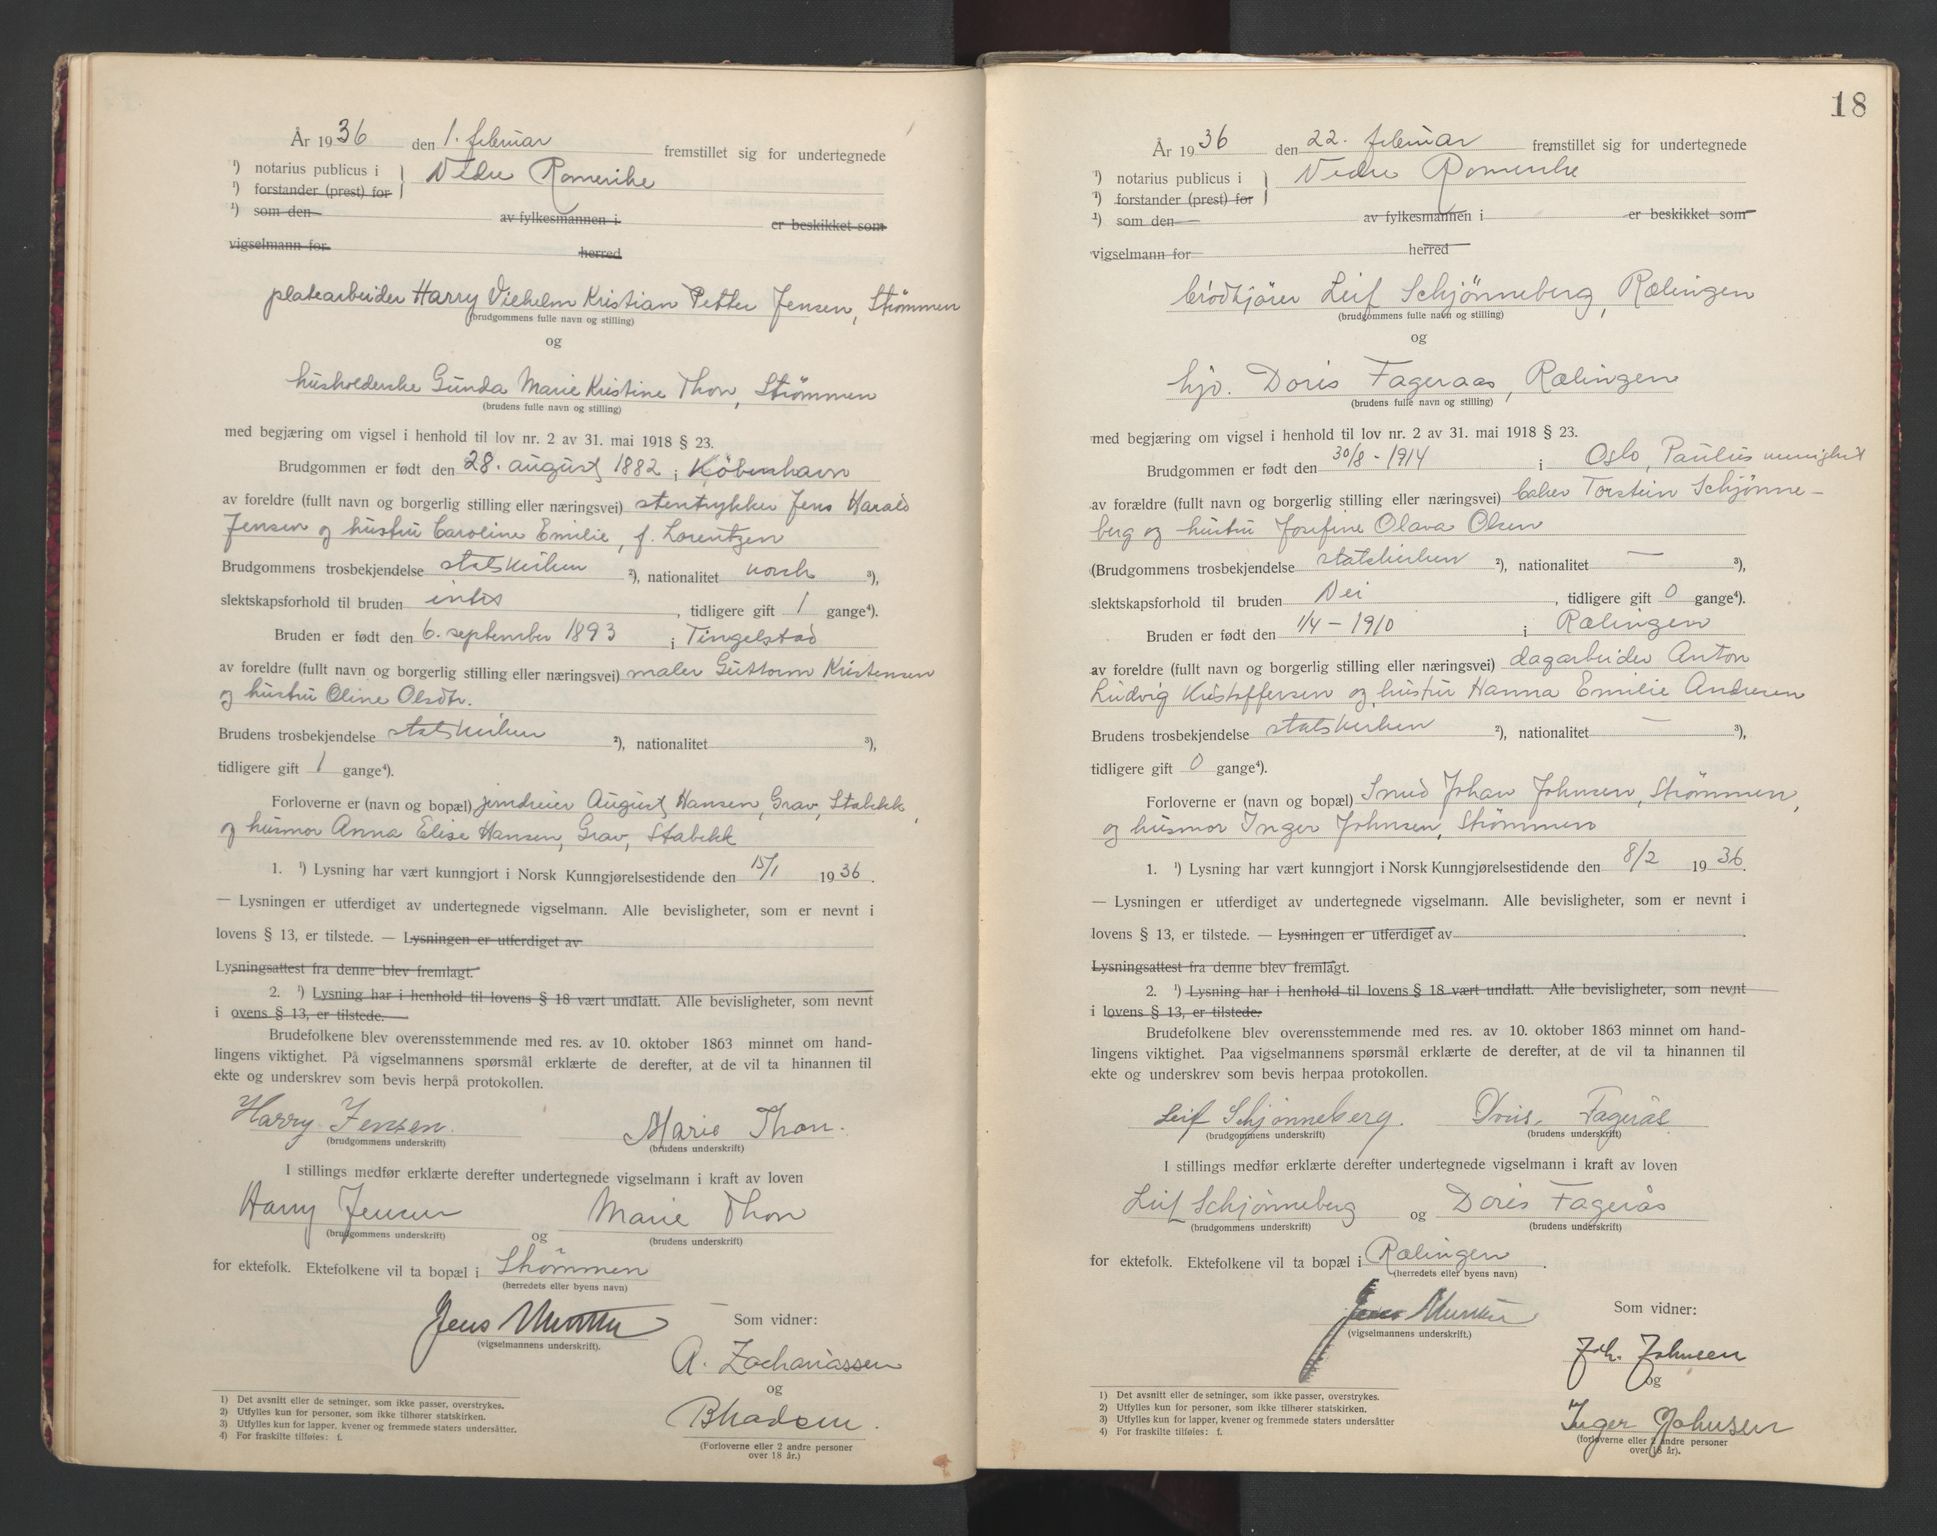 År 1936 den 1. februar fremstillet sig for undertegnede
¹) notarius publicus i } Nedre Romerike
¹) forstander (prest) for
¹) som den av fylkesmannen i er beskikket som
vigselmann for herred
platearbeider Harry Vilhelm Kristian Petter Jensen, Strømmen
(brudgommens fulle navn og stilling)
og
husholderske Gunda Marie Kristine Thon, Strømmen
(brudens fulle navn og stilling)
med begjæring om vigsel i henhold til lov nr. 2 av 31. mai 1918 § 23.
Brudgommen er født den 28. august 1882 i København
av foreldre (fullt navn og borgerlig stilling eller næringsvei) stentrykker Jens Harald
Jensen og hustru Caroline Emilie, f. Lorentzen
Brudgommens trosbekjendelse statskirken ²), nationalitet norsk ³),
slektskapsforhold til bruden intet, tidligere gift 1 gange⁴).
Bruden er født den 6. september 1893 i Tingelstad
av foreldre (fullt navn og borgerlig stilling eller næringsvei) maler Guttorm Kristensen
og hustru Oline Olsdtr.
Brudens trosbekjendelse statskirken ²), nationalitet ³),
tidligere gift 1 gange⁴).
Forloverne er (navn og bopæl) jerndreier August Hansen, Grav, Stabekk,
og husmor Anna Elise Hansen, Grav, Stabekk
1. ¹) Lysning har vært kunngjort i Norsk Kunngjørelsestidende den 15/1 1936.
— Lysningen er utferdiget av undertegnede vigselmann. Alle bevisligheter, som er nevnt i
lovens § 13, er tilstede. — Lysningen er utferdiget av
Lysningsattest fra denne blev fremlagt.
2. ¹) Lysning har i henhold til lovens § 18 vært undlatt. Alle bevisligheter, som nevnt
i lovens § 13, er tilstede.
Brudefolkene blev overensstemmende med res. av 10. oktober 1863 minnet om hand-
lingens viktighet. På vigselmannens spørsmål erklærte de derefter, at de vil ta hinannen til
ekte og underskrev som bevis herpå protokollen.
Harry Jensen. Marie Thon.
(brudgommens underskrift) (brudens underskrift)
I stillings medfør erklærte derefter undertegnede vigselmann i kraft av loven
Harry Jensen og Marie Thon
(brudgommens underskrift) (brudens underskrift)
for ektefolk. Ektefolkene vil ta bopæl i Strømmen
(herredets eller byens navn)
Jens
(vigselmannens underskrift).
Som vidner:
A. Zachariassen
og
(Forloverne eller 2 andre personer
over 18 år.)
1) Det avsnitt eller de setninger, som ikke passer, overstrykes.
2) Utfylles kun for personer, som ikke tilhører statskirken.
3) Utfylles kun for lapper, kvener og fremmede staters undersåtter.
4) For fraskilte tilføies: f.
18
År 1936 den 22. februar fremstillet sig for undertegnede
¹) notarius publicus i } Nedre Romerike
¹) forstander (prest) for
¹) som den av fylkesmannen i er beskikket som
vigselmann for herred
brødkjører Leif Schjønneberg, Rælingen
(brudgommens fulle navn og stilling)
og
hjv. Doris Fageraas, Rælingen
(brudens fulle navn og stilling)
med begjæring om vigsel i henhold til lov nr. 2 av 31. mai 1918 § 23.
Brudgommen er født den 30/8 - 1914 i Oslo, Paulus menighet
av forældre (fullt navn og borgerlig stilling eller næringsvei) baker Torstein Schjønne-
berg og hustru Josefine Olava Olsen
(Brudgommens trosbekjendelse statskirken ²), nationalitet — ³),
slektskapsforhold til bruden Nei, tidligere gift 0 gange⁴).
Bruden er født den 1/4 - 1910 i Rælingen
av foreldre (fullt navn og borgerlig stilling eller næringsvei) dagarbeider Anton
Ludvig Kristoffersen og hustru Hanna Emilie Andresen
Brudens trosbekjendelse statskirken ²), nationalitet — ³),
tidligere gift 0 gange⁴).
Forloverne er (navn og bopæl) Smed Johan Johnsen, Strømmen,
og husmor Inger Johnsen, Strømmen
1. ¹) Lysning har vært kunngjort i Norsk Kunngjørelsestidende den 8/2 1936.
— Lysningen er utferdiget av undertegnede vigselmann. Alle bevisligheter, som er nevnt i
lovens § 13, er tilstede. — Lysningen er utferdiget av
Lysningsattest fra denne blev fremlagt.
2. ¹) Lysning har i henhold til lovens § 18 vært undlatt. Alle bevisligheter, som nevnt
i lovens § 13, er tilstede.
Brudefolkene blev overensstemmende med res. av 10. oktober 1863 minnet om hand-
lingens viktighet. Paa vigselmannens spørsmål erklærte de derefter, at de vil ta hinannen til
ekte og underskrev som bevis herpaa protokollen.
Leif Schjønneberg. Doris Fagerås
(brudgommens underskrift) (brudens underskrift)
I stillings medfør erklærte derefter undertegnede vigselmann i kraft av loven
Leif Schjønneberg og Doris Fagerås
(brudgommens underskrift) (brudens underskrift)
for ektefolk. Ektefolkene vil ta bopæl i Rælingen.
(herredets eller byens navn)
Jens
(vigselmannens underskrift.)
Som vidner:
Joh. Johnsen
og
Inger Johnsen
(forloverne eller 2 andre personer
over 18 år).
1) Det avsnitt eller de setninger, som ikke passer, overstrykes.
2) Utfylles kun for personer, som ikke tilhører statskirken.
3) Utfylles kun for lapper, kvener og fremmede staters undersåtter
4) For fraskilte tilføies: f.